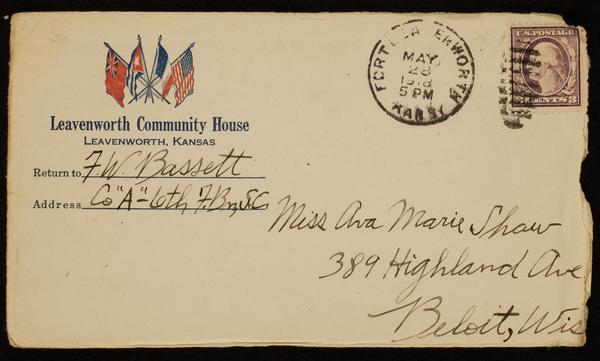 Leavenworth Community House
LEAVENWORTH, KANSAS
Return to F.W. Bassett
Address Co "A" - 6th F. Bn, S.C.
FORT LEAVENWORTH
MAY
28
1918
5 PM
KANS.
U.S. POSTAGE
CENTS 3
Miss Ava Marie Shaw
389 Highland Ave
Beloit, Wis